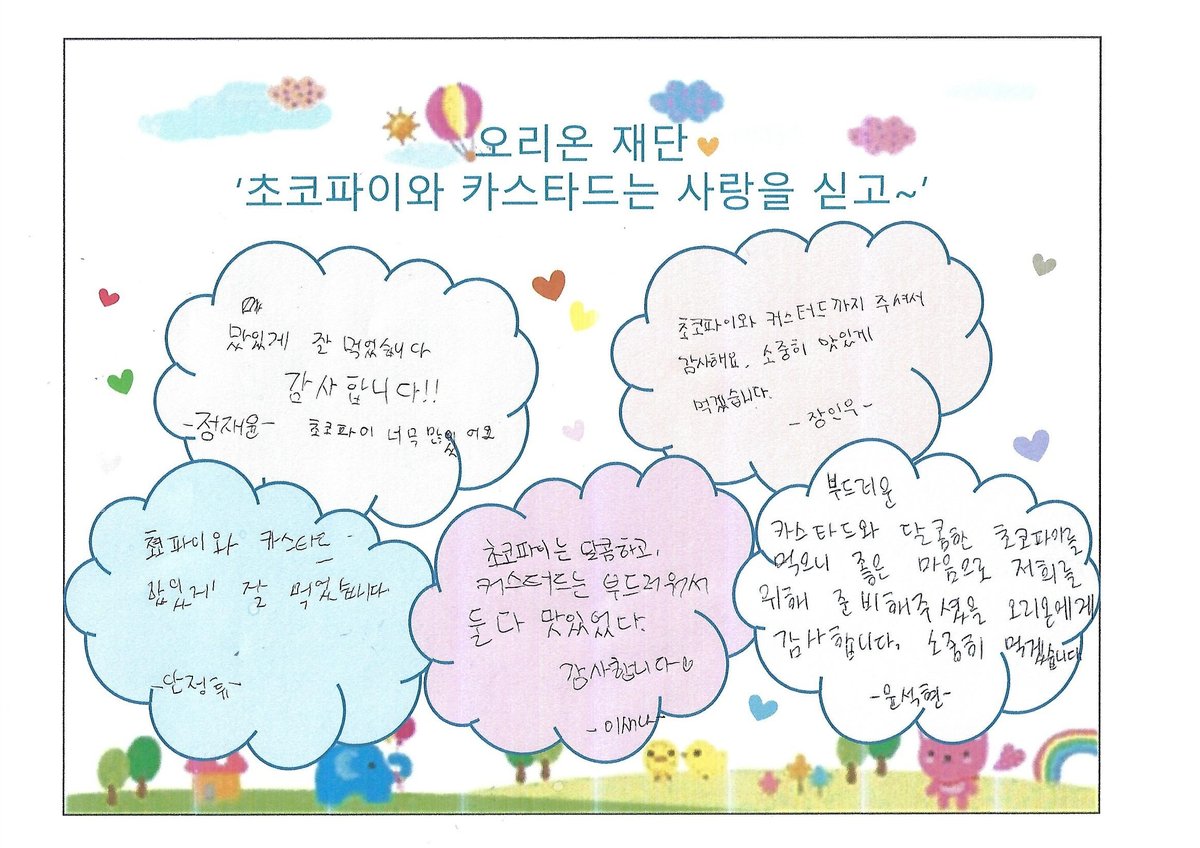 오리온 재단
‘초코파이와 카스타드는 사랑을 싣고~’
맛있게 잘 먹었습니다
감사합니다!!
-정재윤- 초코파이 너무 많있어요
초코파이와 커스터드까지 주셔서
감사해요. 소중히 맛있게
먹겠습니다.
- 장인우 -
초코파이와 카스타드
맜있게 잘 먹었습니다
-안정튜-
초코파이는 달콤하고,
커스터드는 부드러워서
둘다 맛있었다.
감사합니다♡
- 이새나 -
부드러운
카스타드와 달콤한 초코파이를
먹으니 좋은 마음으로 저희를
위해 준비해주셨을 오리온에게
감사합니다. 소중히 먹겠습니다
-윤석현-